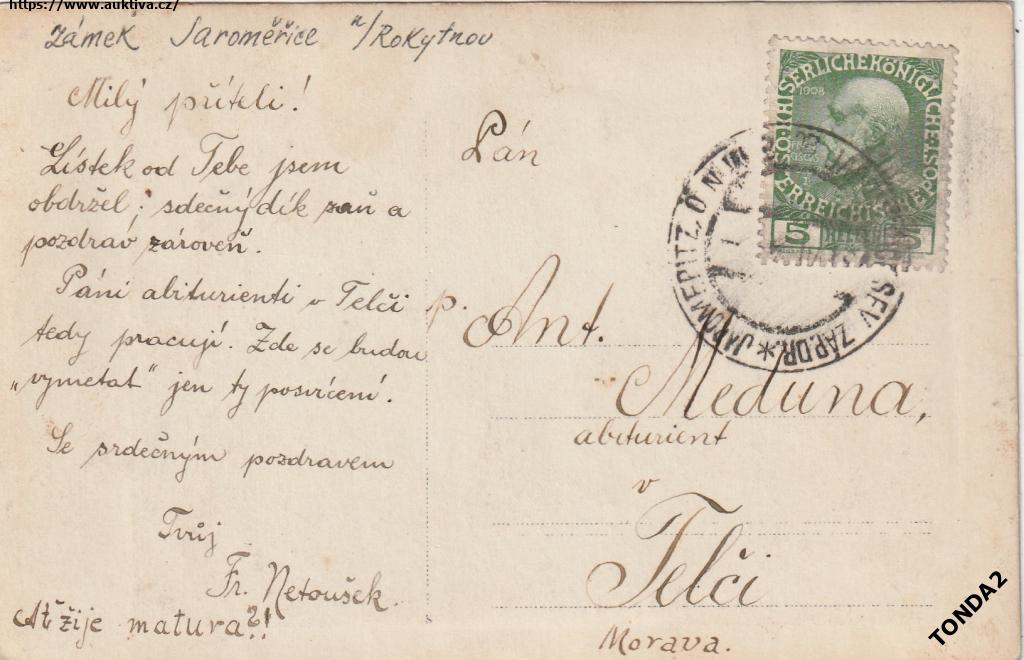 https://www.auktiva.cz/
Zámek Jaroměřice n/Rokytnou
Milý příteli!
Lístek od Tebe jsem
obdržel; sdečný dík zaň a
pozdrav zároveň.
Páni abiturienti v Telči
tedy pracují. Zde se budou
„vymetat" jen ty posvícení.
Se srdečným pozdravem
Tvůj
Fr. Netoušek.
Ať žije matura?!
Pán
p. Ant.
Meduna,
abiturient
v
Telči
Morava.
KAISERLICHEKÖNIGLICHE
1908
ÖSTERREICHISCHE POST
5 HELLER 5
TONDA2